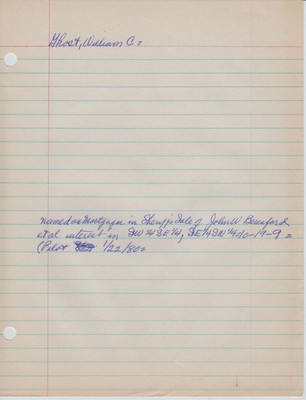 Ghost, William C.
named as Mortgagee in Sheriff's Sale of John W. Beresford
et al interest in SW 1/4 SE 1/4, SE 1/4 SW 1/4 10-19-9
(Pilot 1/22/80